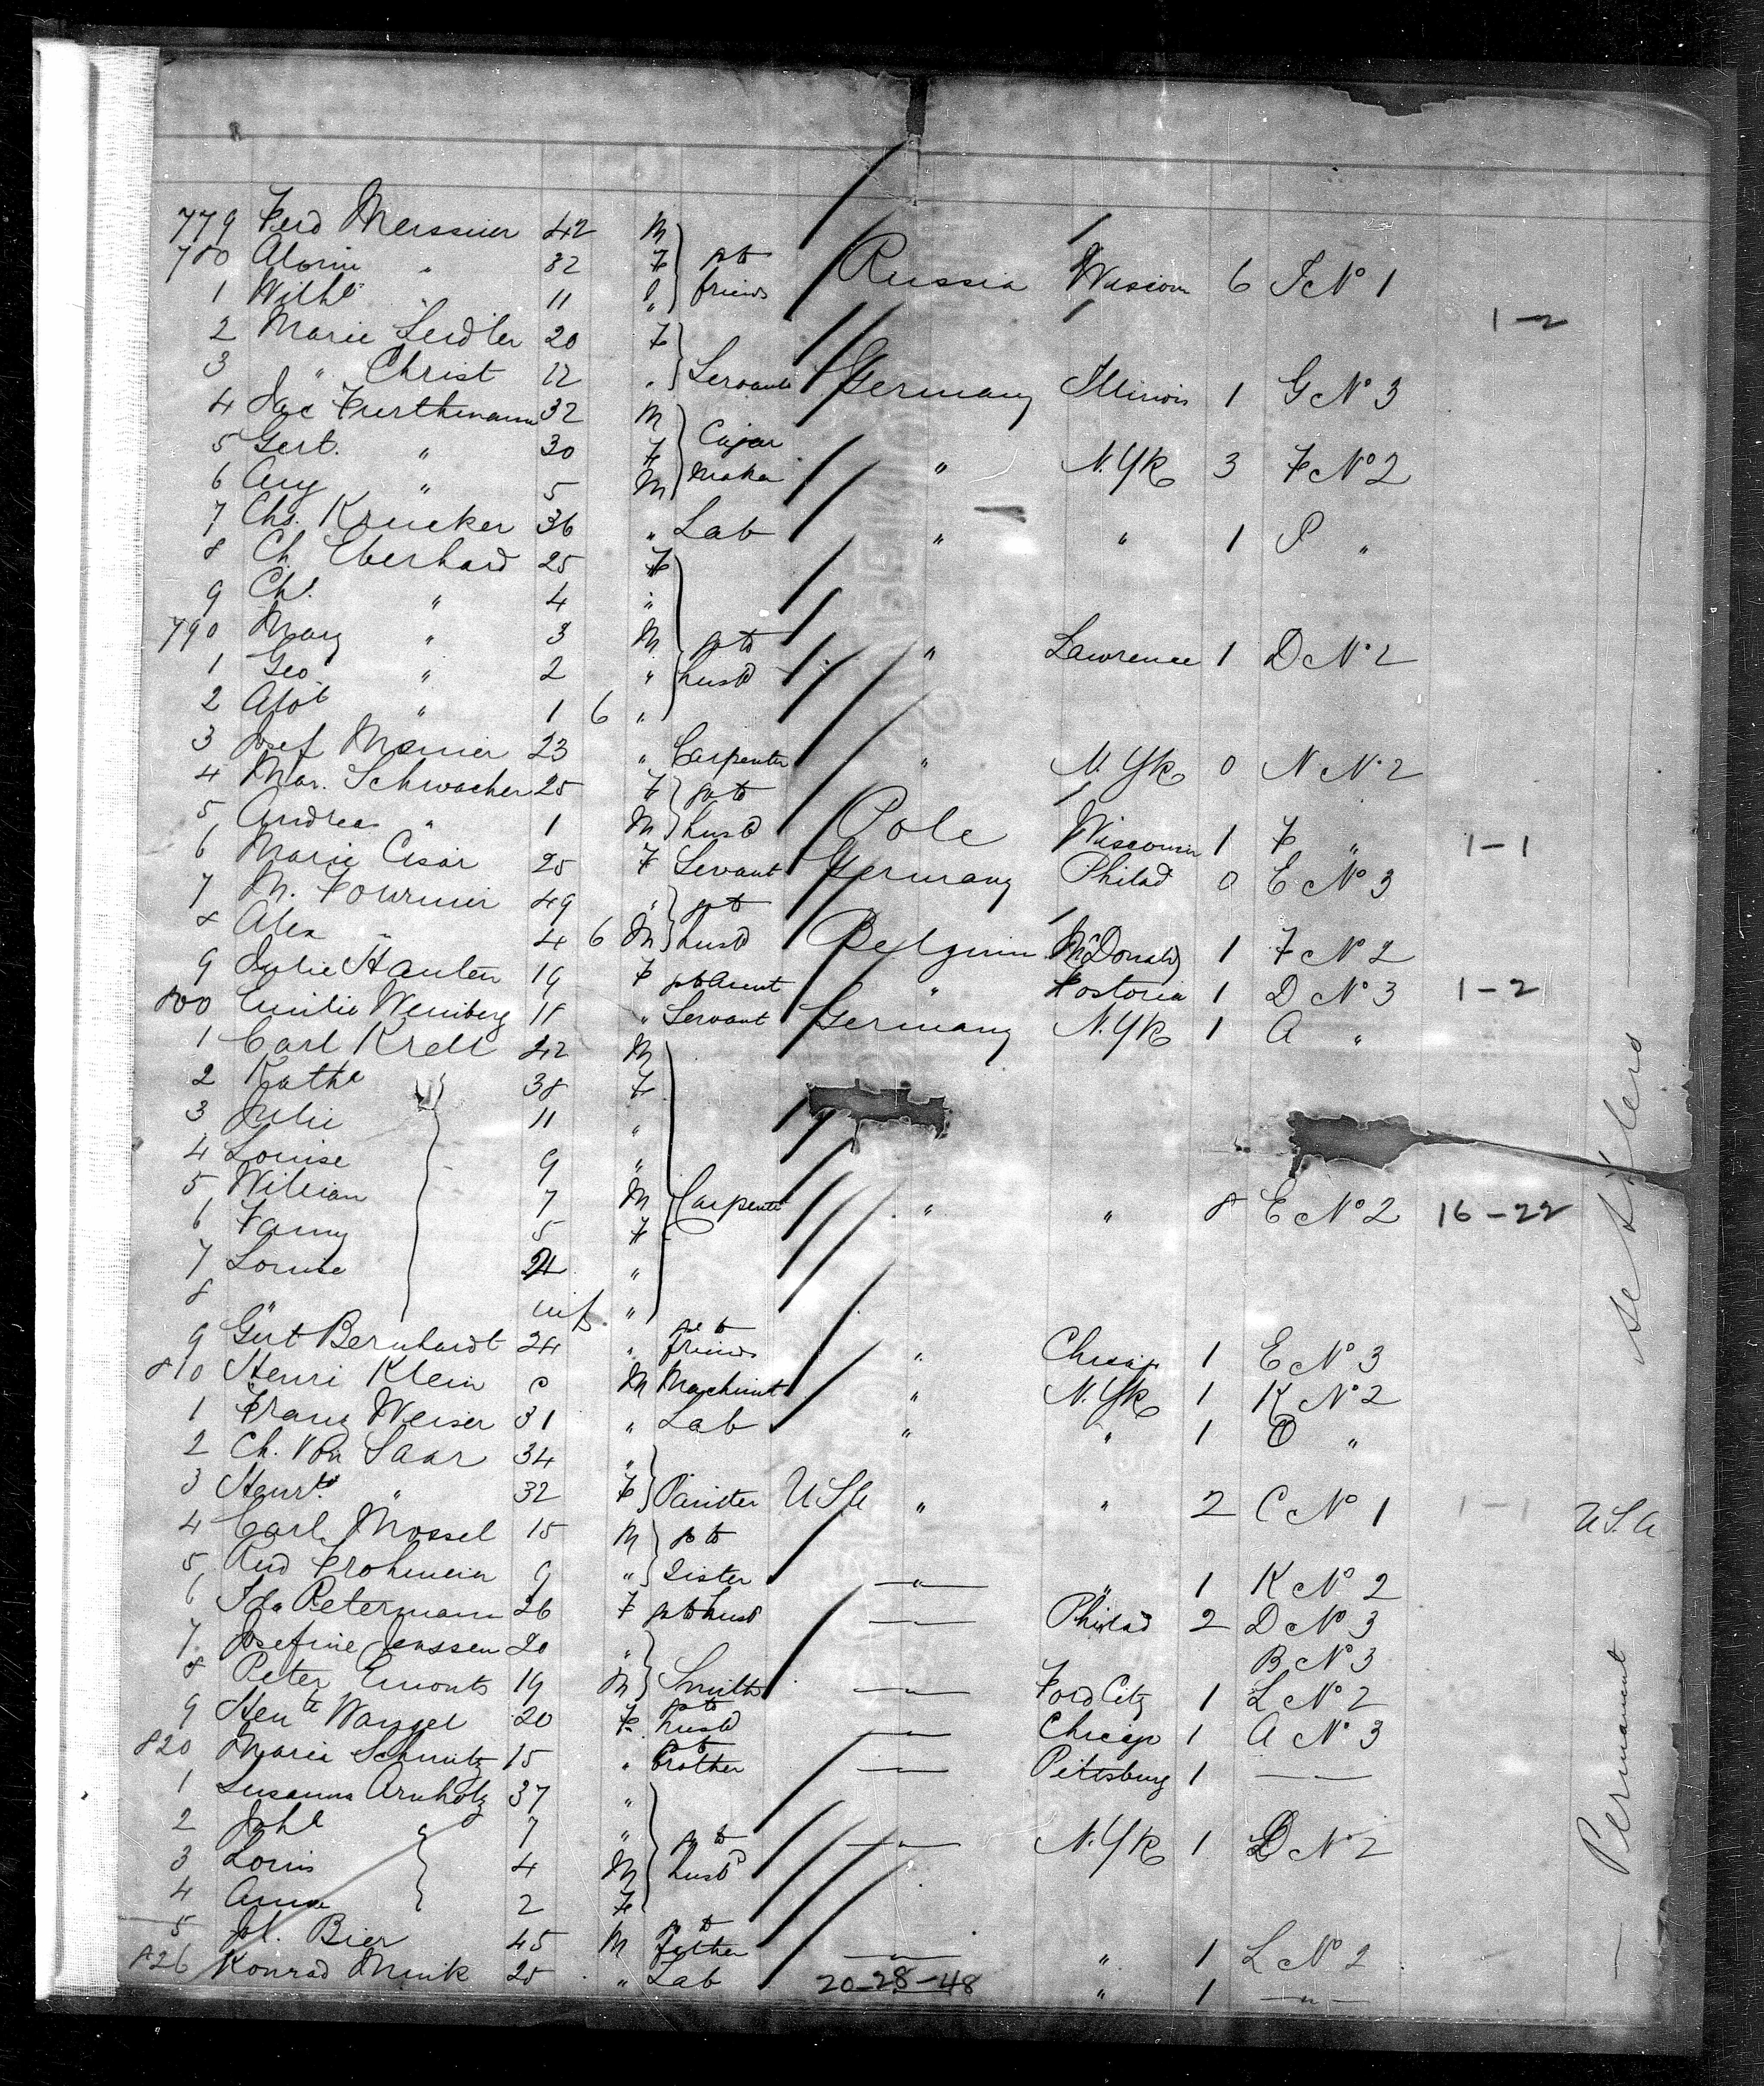 779 Ferd Merssier 42 M
780 Alorin " 32 F } pr to Russia Wiscon 6 J No 1
1 Wilhe 11 " friends
1-2
2 Marie Seidler 20 F
3 " Christ 12 " } Servants Germany Illinois 1 G No 3
4 Jac Furthmann 32 M
5 Gert. " 30 F } Cigar Maker " N.Yk 3 F No 2
6 Aug " 5 M
7 Chs. Krucker 36 " Lab " " 1 P "
8 Ch. Eberhard 25 F
9 Chs. " 4 "
790 Mary " 3 M } pr to husbd " Lawrence 1 D No 2
1 Geo " 2 "
2 " 1 6 "
3 Josef Menier 23 " Carpenter " N.Yk 0 N No 2
4 Mar. Schwacher 25 F } pr to
5 Andreas " 1 M } husbd Pole Wisconsin 1 F " 1-1
6 Marie Cesar 25 F Servant Germany Philad 0 E No 3
7 M. Fourmier 49 " } pr to
8 Alex " 4 6 M } husbd Belgium McDonald 1 F No 2
9 Julie Hauten 19 F pr to aunt " Fostoria 1 D No 3 1-2
800 Emilie Weniberg 18 " Servant Germany N.Yk 1 A "
1 Carl Krell 42 M
2 Kathe 38 F
3 Julie 11 "
4 Louise 9 "
5 William 7 M } Carpenter " " 8 E No 2 16-22
6 Fanny 5 F
7 Louise "
8 " inf "
9 Gert Bernhardt 24 " pr to friends " Chicago 1 E No 3
810 Henri Klein M Machinist " N.Yk 1 K No 2
1 Franz Weiser 31 " Lab " " 1 O "
2 Ch. Von Saar 34 "
3 Henrte " 32 F } Painter U S A " " 2 C No 1 1-1 U.S.A
4 Carl Mossel 15 M } pr to
5 Rud Frohmein 9 " } Sister —"— " 1 K No 2
6 Ida Petermann 26 F pr to husbd —"— Philad 2 D No 3
7 Josefine Janssen 20 " B No 3
8 Peter Emonts 19 M } Smith —"— Ford City 1 L No 2
9 Hente Wangel 20 F pr to husbd —"— Chicago 1 A No 3
820 Maria Schmitz 15 " pr to brother —"— Pittsburg 1 ——
1 Susanna Arnholz 37 "
2 Johe 7 " } pr to —"— N.Yk 1 D No 2
3 Louis 4 M } husbd
4 Anna 2 F
5 Jol. Bier 45 M pr to Father —"— " 1 L No 2
826 Konrad Munk 25 " Lab 20-28-48 " 1 —"—
settlers
— Permanent